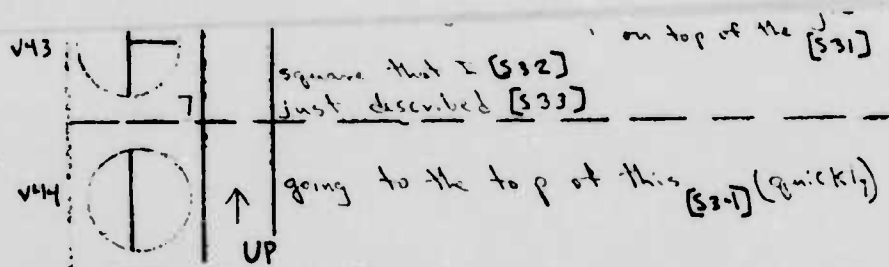 V43 on top of the [S31]
square that I [S32]
7 just described [S33]
V44 going to the top of this [S34] (quickly)
↑
UP